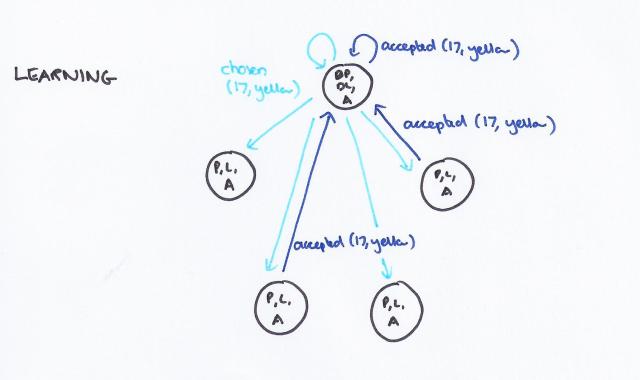 LEARNING
accepted (17, yellow)
chosen
(17, yellow)
DP,
DL,
A
accepted (17, yellow)
P, L,
A
P, L,
A
accepted (17, yellow)
P, L,
A
P, L,
A